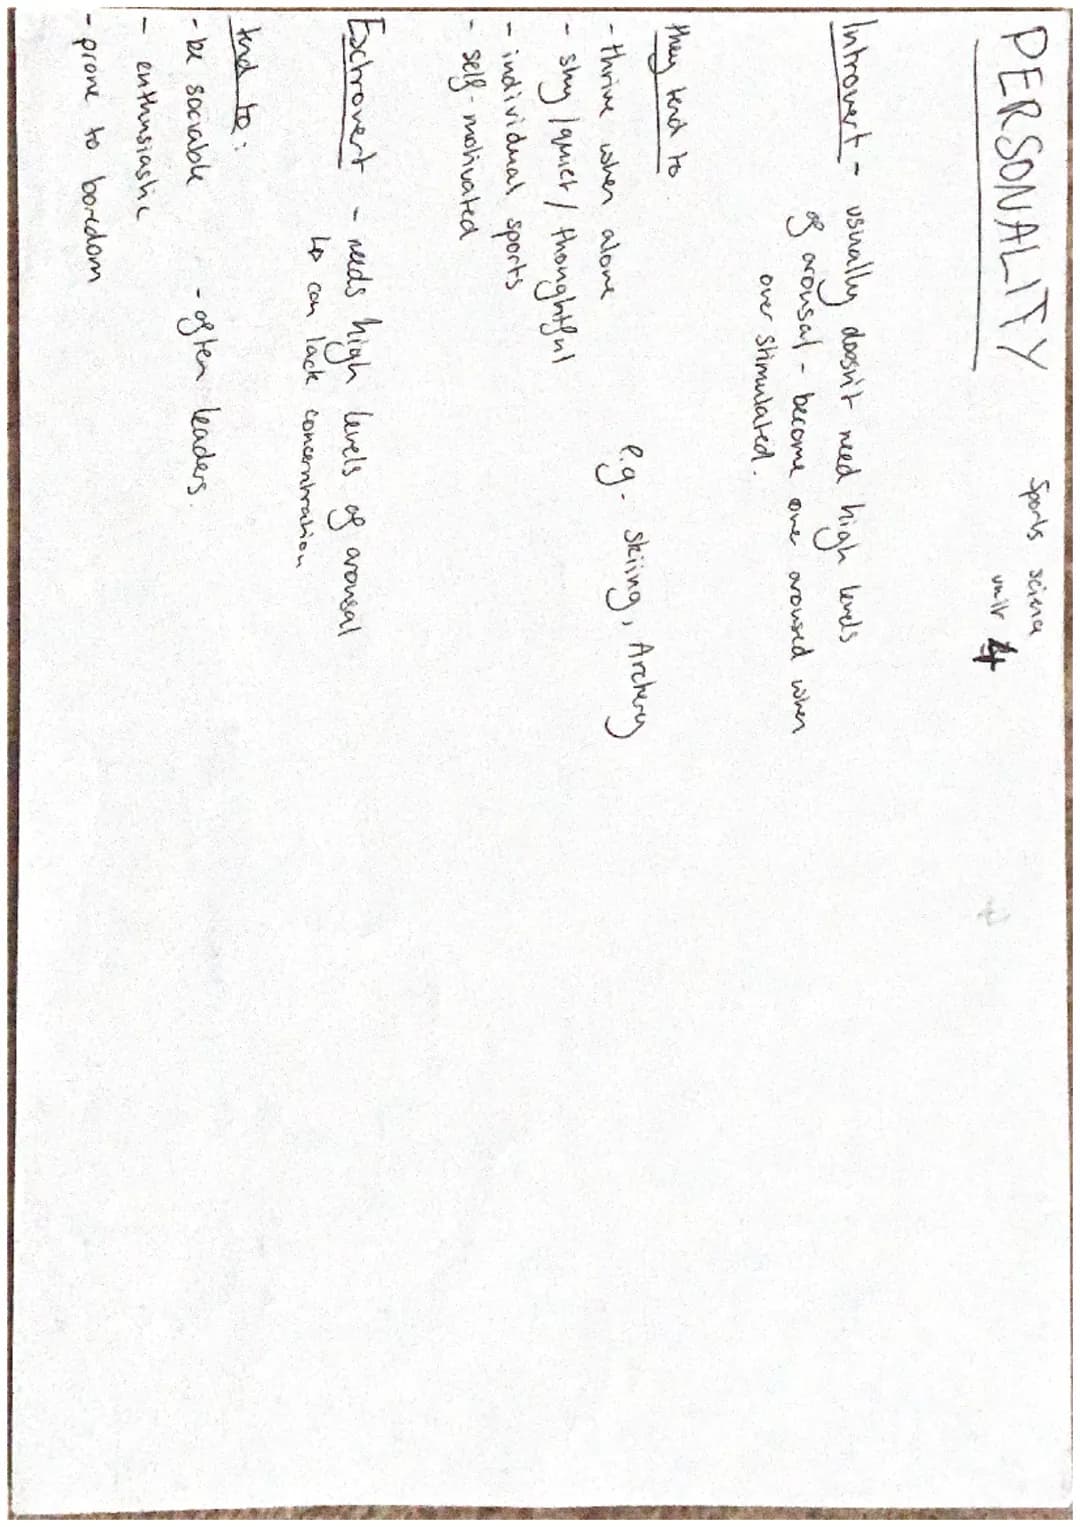 PERSONALITY
Sports science
unit 4
Introvert - usually doesn't need high levels
of arousal - become over aroused when
over stimulated.
they tend to
- thrive when alone
e.g. skiing, Archery
- shy / quiet / thoughtful
- individual sports
- self-motivated
Extrovert - needs high levels of arousal
↳ can lack concentration
tend to:
- be sociable - often leaders.
- enthusiastic
- prone to boredom